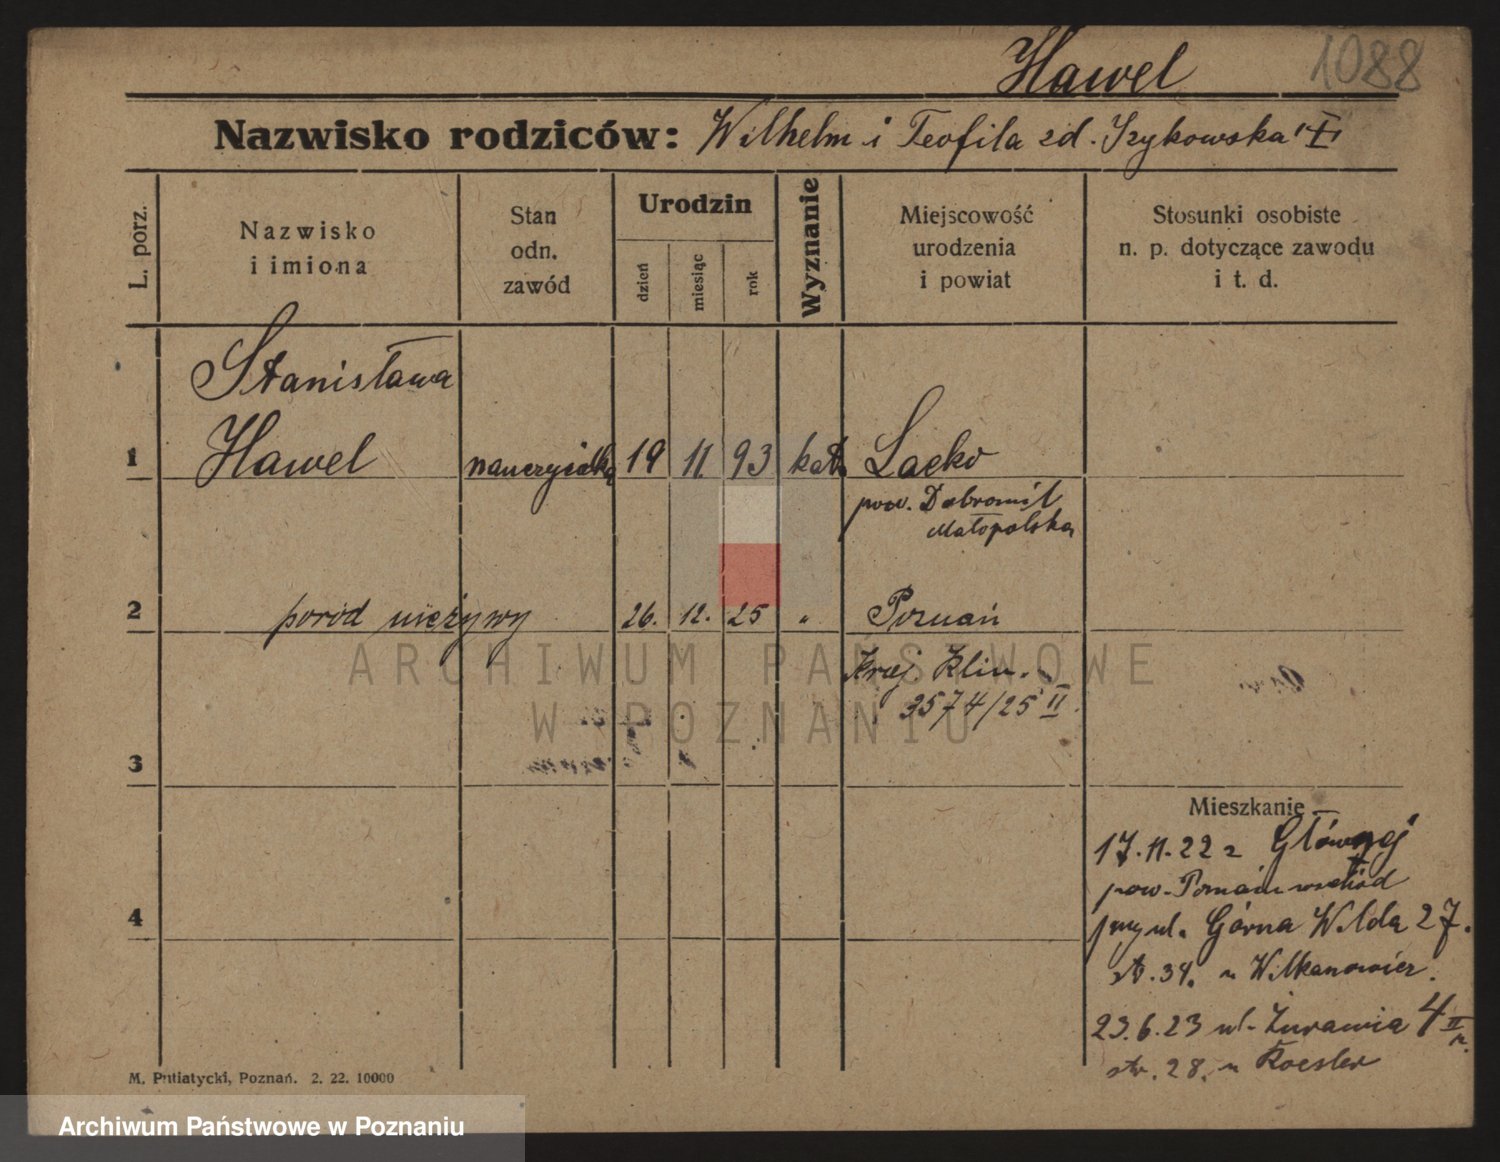 Hawel 1088
Nazwisko rodziców: Wilhelm i Teofila zd. Iżykowska
L. porz.
Nazwisko
i imiona
Stan
odn.
zawód
Urodzin
dzień
miesiąc
rok
Wyznanie
Miejscowość
urodzenia
i powiat
Stosunki osobiste
n. p. dotyczące zawodu
i t. d.
Stanisława
1 Hawel nauczycielka 19 11. 93 kat. Lacko
pow. Dobromil
Małopolska
2 poród nieżywy 26. 12. 25 " Poznań
Kraj Klin.
3574/25 II
ARCHIWUM PAŃSTWOWE
W POZNANIU
3
Mieszkanie
17.11.22 z Głównej
pow. Poznań wschód
4
przy ul. Górna Wilda 27.
str. 34. u Wilkanowicz.
23.6.23 ul. Żurawia 4 II p.
str. 28. u Koesler
M. Putiatycki, Poznań. 2. 22. 10000
Archiwum Państwowe w Poznaniu